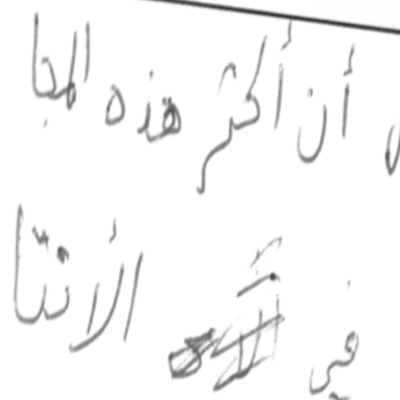 أن أكثر هذه المجا
في الأنتا